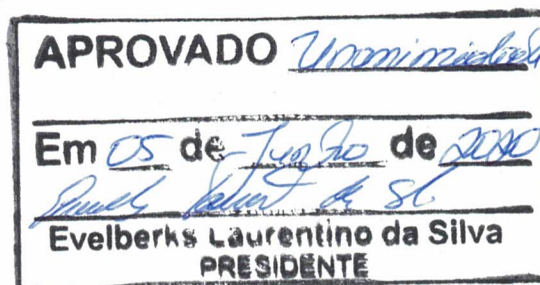 APROVADO Unanimidade
Em 05 de de 2020
Evelberks Laurentino da Silva
PRESIDENTE